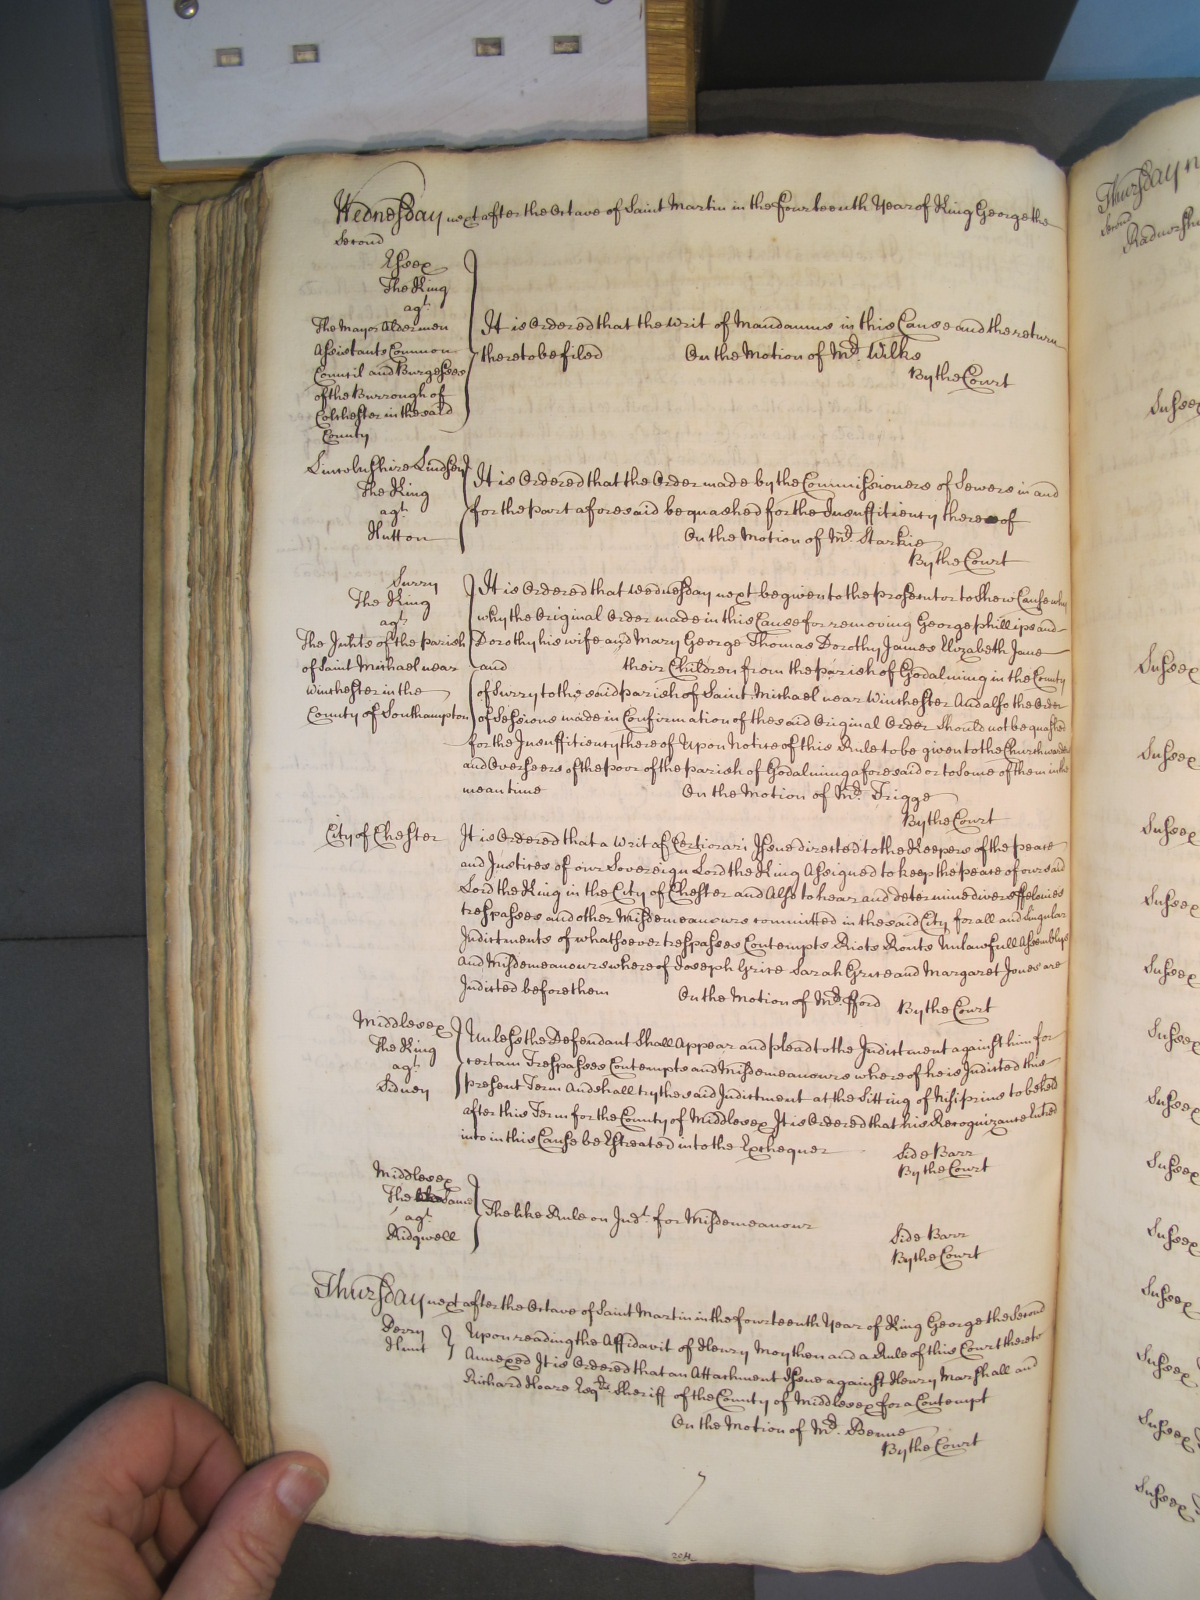 Wednesday next after the Octave of Saint Martin in the Fourteenth Year of King George the
Second
Essex
The King
agt.
The Mayor Aldermen
Assistants Common
Council and Burgesses
of the Burrough of
Colchester in the said
County
It is Ordered that the Writ of Mandamus in this Cause and the return
thereto be filed On the Motion of Mr. Wilks
By the Court
Lincolnshire Lindsey
The King
agt.
Hutton
It is Ordered that the Order made by the Commissioners of Sewers in and
for the part aforesaid be quashed for the Insufficiency thereof
On the Motion of Mr. Starkie
By the Court
Surry
The King
agt.
The Inhts of the Parish
of Saint Michael near
Winchester in the
County of Southampton
It is Ordered that Wednesday next be given to the prosecutor to shew Cause why
why the Original Order made in this Cause for removing George phillips and
Dorothy his wife and Mary George Thomas Dorothy James Elizabeth Jane
and their Children from the parish of Godalming in the County
of Surry to the said parish of Saint Michael near Winchester And also the Order
of Sessions made in Confirmation of the said Original Order should not be quashed
for the Insufficiency thereof Upon Notice of this Rule to be given to the Churchwardens
and Overseers of the poor of the parish of Godalming aforesaid or to some of them in the
meantime On the Motion of Mr. Trigge
By the Court
City of Chester
It is Ordered that a Writ of Certiorari Issue directed to the Keepers of the peace
and Justices of our Sovereign Lord the King Assigned to keep the peace of our said
Lord the King in the City of Chester and Also to hear and determine divers ffelonies
trespasses and other Misdemeanours committed in the said City for all and Singular
Indictments of whatsoever trespasses Contempts Riots Routs Unlawfull Assemblys
and Misdemeanours whereof Joseph Grice Sarah Grice and Margaret Jones are
Indicted before them On the Motion of Mr. fford By the Court
Middlesex
The King
agt.
Sidney
Unless the Defendant Shall Appear and plead to the Indictment against him for
certain Trespasses Contempts and Misdemeanours whereof he is Indicted this
present Term And shall try the said Indictment at the Sitting of Nisi prius to be held
after this Term for the County of Middlesex It is Ordered that his Recognizance Entred
into in this Cause be Estreated into the Exchequer Side Barr
By the Court
Middlesex
The Same
agt.
Ridgwell
The like Rule on Indt. for Misdemeanour
Side Barr
By the Court
Thursday next after the Octave of Saint Martin in the fourteenth Year of King George the Second
Derry
Hunt
Upon reading the Affidavit of Henry Moythen and a Rule of this Court thereto
Annexed It is Ordered that an Attachment Issue against Henry Marshall and
Richard Hoare Esqrs. Sheriff of the County of Middlesex for a Contempt
On the Motion of Mr. Denne
By the Court
Thursday
Second
Sussex
Sussex
Sussex
Sussex
Sussex
Sussex
Sussex
Sussex
Sussex
Sussex
Sussex
Sussex
Sussex
Sussex